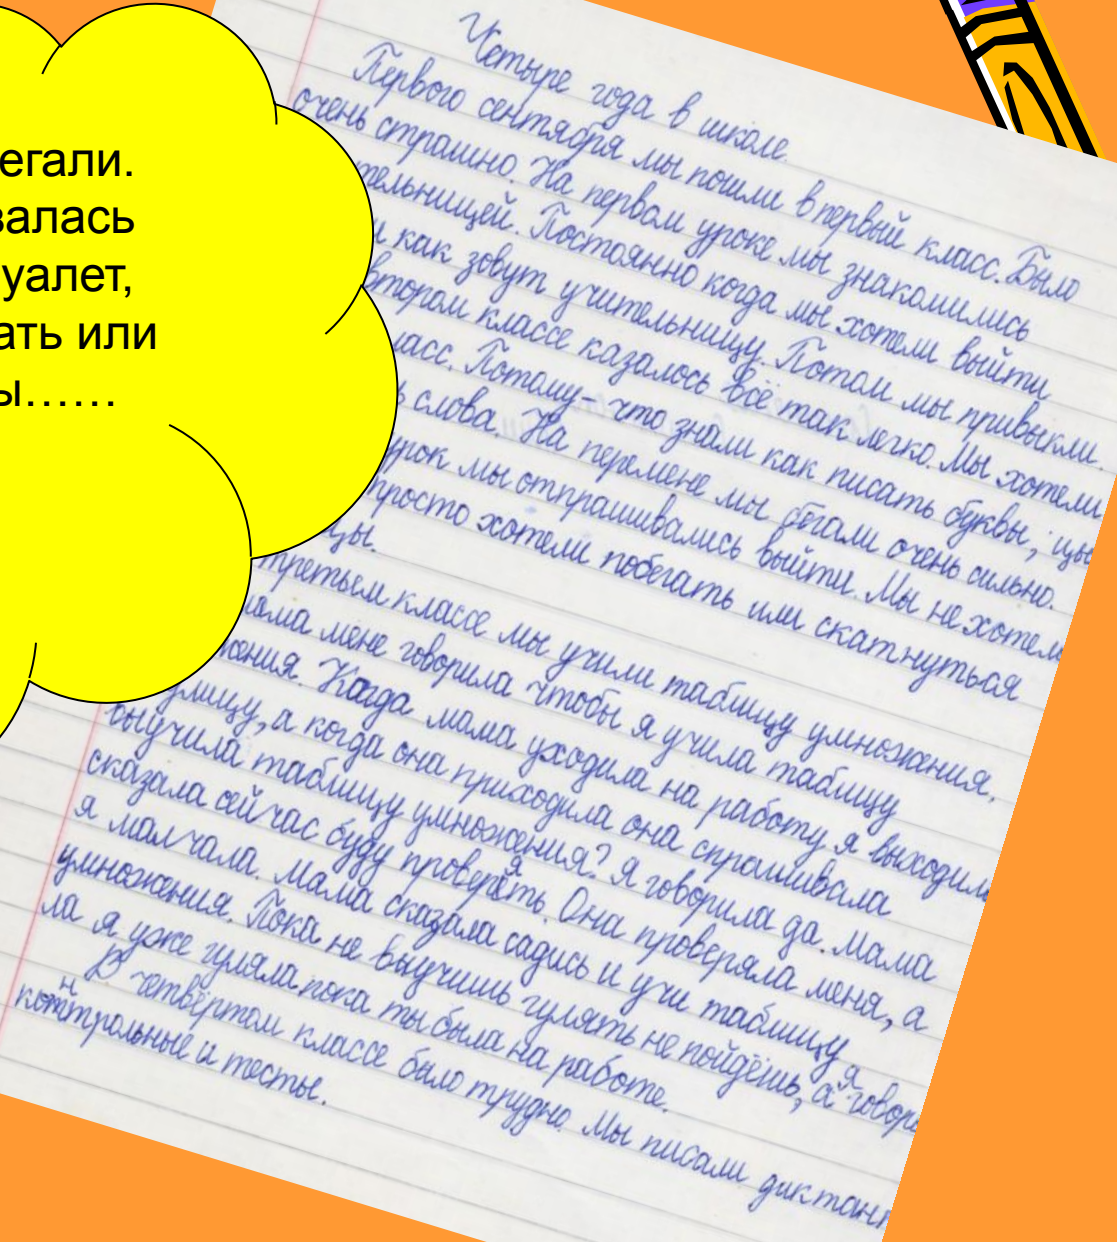 егали.
валась
уалет,
ать или
ы……
Четыре года в школе.
Первого сентября мы пошли в первый класс. Было
очень страшно. На первом уроке мы знакомились
тельницей. Постоянно когда мы хотели выйти
и как зовут учительницу. Потом мы привыкли.
втором классе казалось всё так легко. Мы хотели
ласс. Потому-что знали как писать буквы, цы
ь слова. На перемене мы бегали очень сильно.
урок мы отпрашивались выйти. Мы не хотели
просто хотели побегать или скатнуться
цы.
третьем классе мы учили таблицу умножения.
мама мене говорила чтобы я учила таблицу
жения. Когда мама уходила на работу я выходила
улицу, а когда она приходила она спрашивала
выучила таблицу умножения? Я говорила да. Мама
сказала сейчас буду проверять. Она проверяла меня, а
я малчала. Мама сказала садись и учи таблицу
умножения. Пока не выучишь гулять не пойдёшь, а я говори
ла я уже гуляла пока ты была на работе.
В четвёртом классе было трудно. Мы писали диктан
контрольные и тесты.